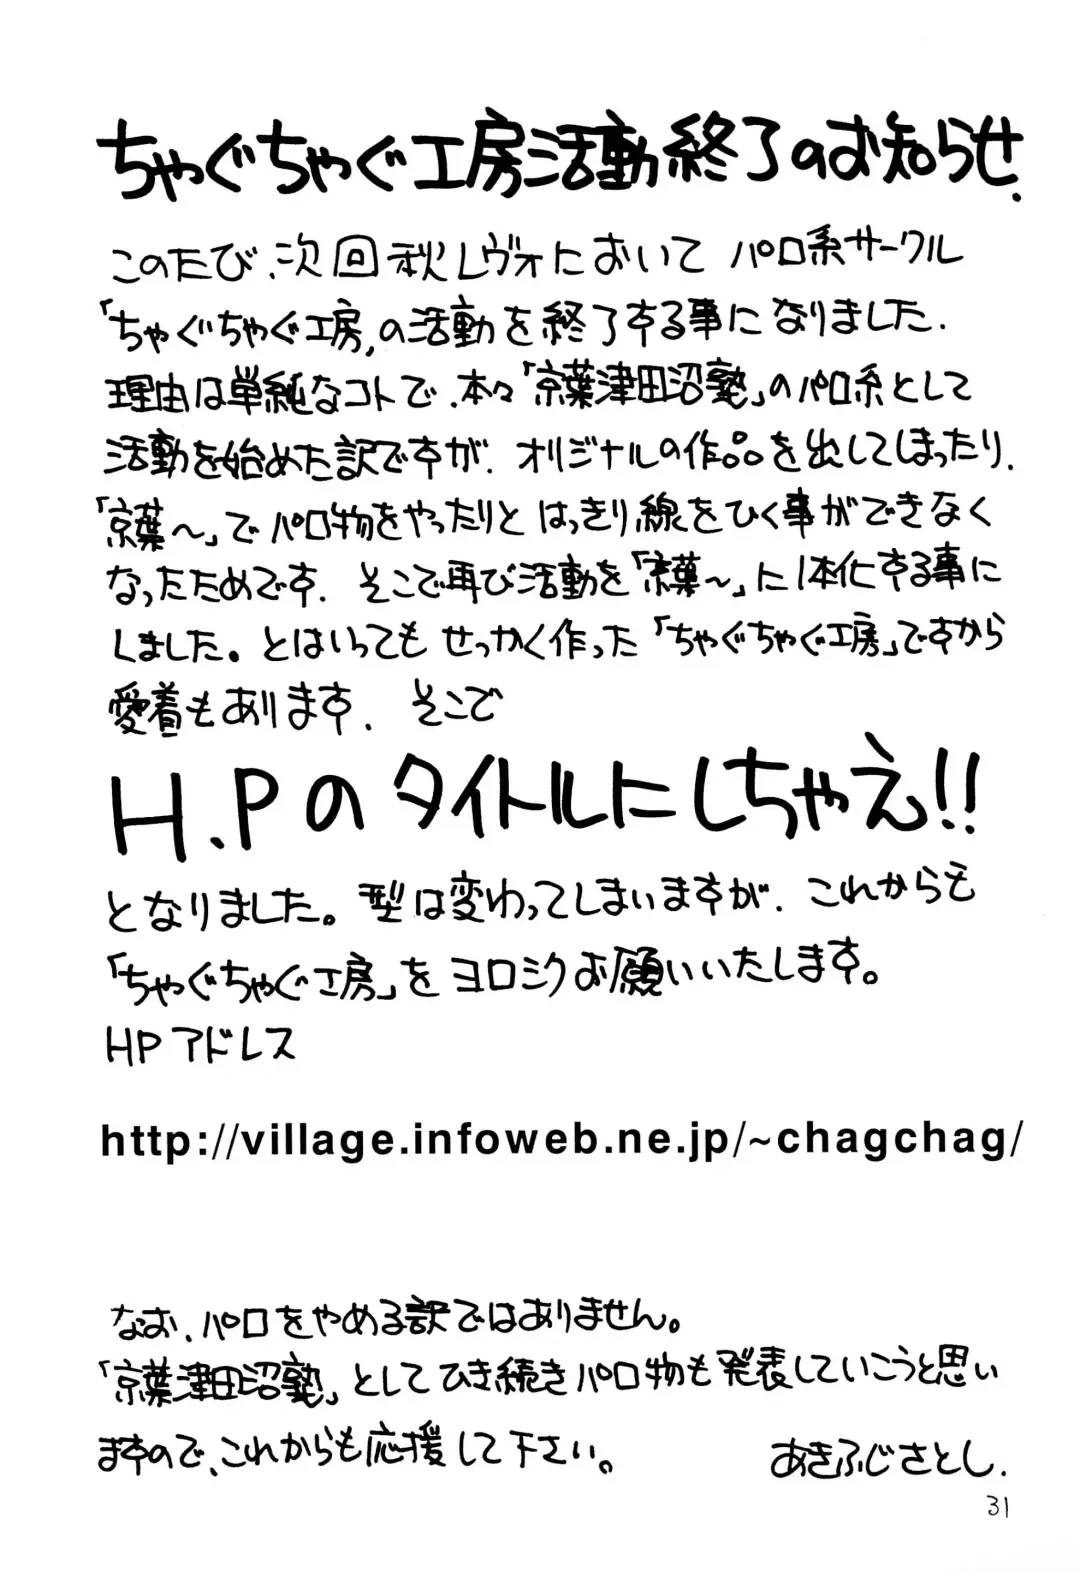 ちゃぐちゃぐ工房活動終了のお知らせ.
このたび、次回秋レヴォにおいて パロ系サークル
「ちゃぐちゃぐ工房」の活動を終了する事になりました.
理由は単純なコトで、本々「京葉津田沼塾」のパロ系として
活動を始めた訳ですが、オリジナルの作品を出してしまったり、
「京葉〜」でパロ物をやったりと はっきり線をひく事ができなく
なったためです. そこで再び活動を「京葉〜」に1本化する事に
しました。とはいっても せっかく作った「ちゃぐちゃぐ工房」ですから
愛着もあります. そこで
H.Pのタイトルにしちゃえ!!
となりました。型は変わってしまいますが、これからも
「ちゃぐちゃぐ工房」をヨロシクお願いいたします。
HPアドレス
http://village.infoweb.ne.jp/~chagchag/
なお、パロをやめる訳ではありません。
「京葉津田沼塾」としてひき続きパロ物も発表していこうと思い
ますので、これからも応援して下さい。 あきふじさとし.
31